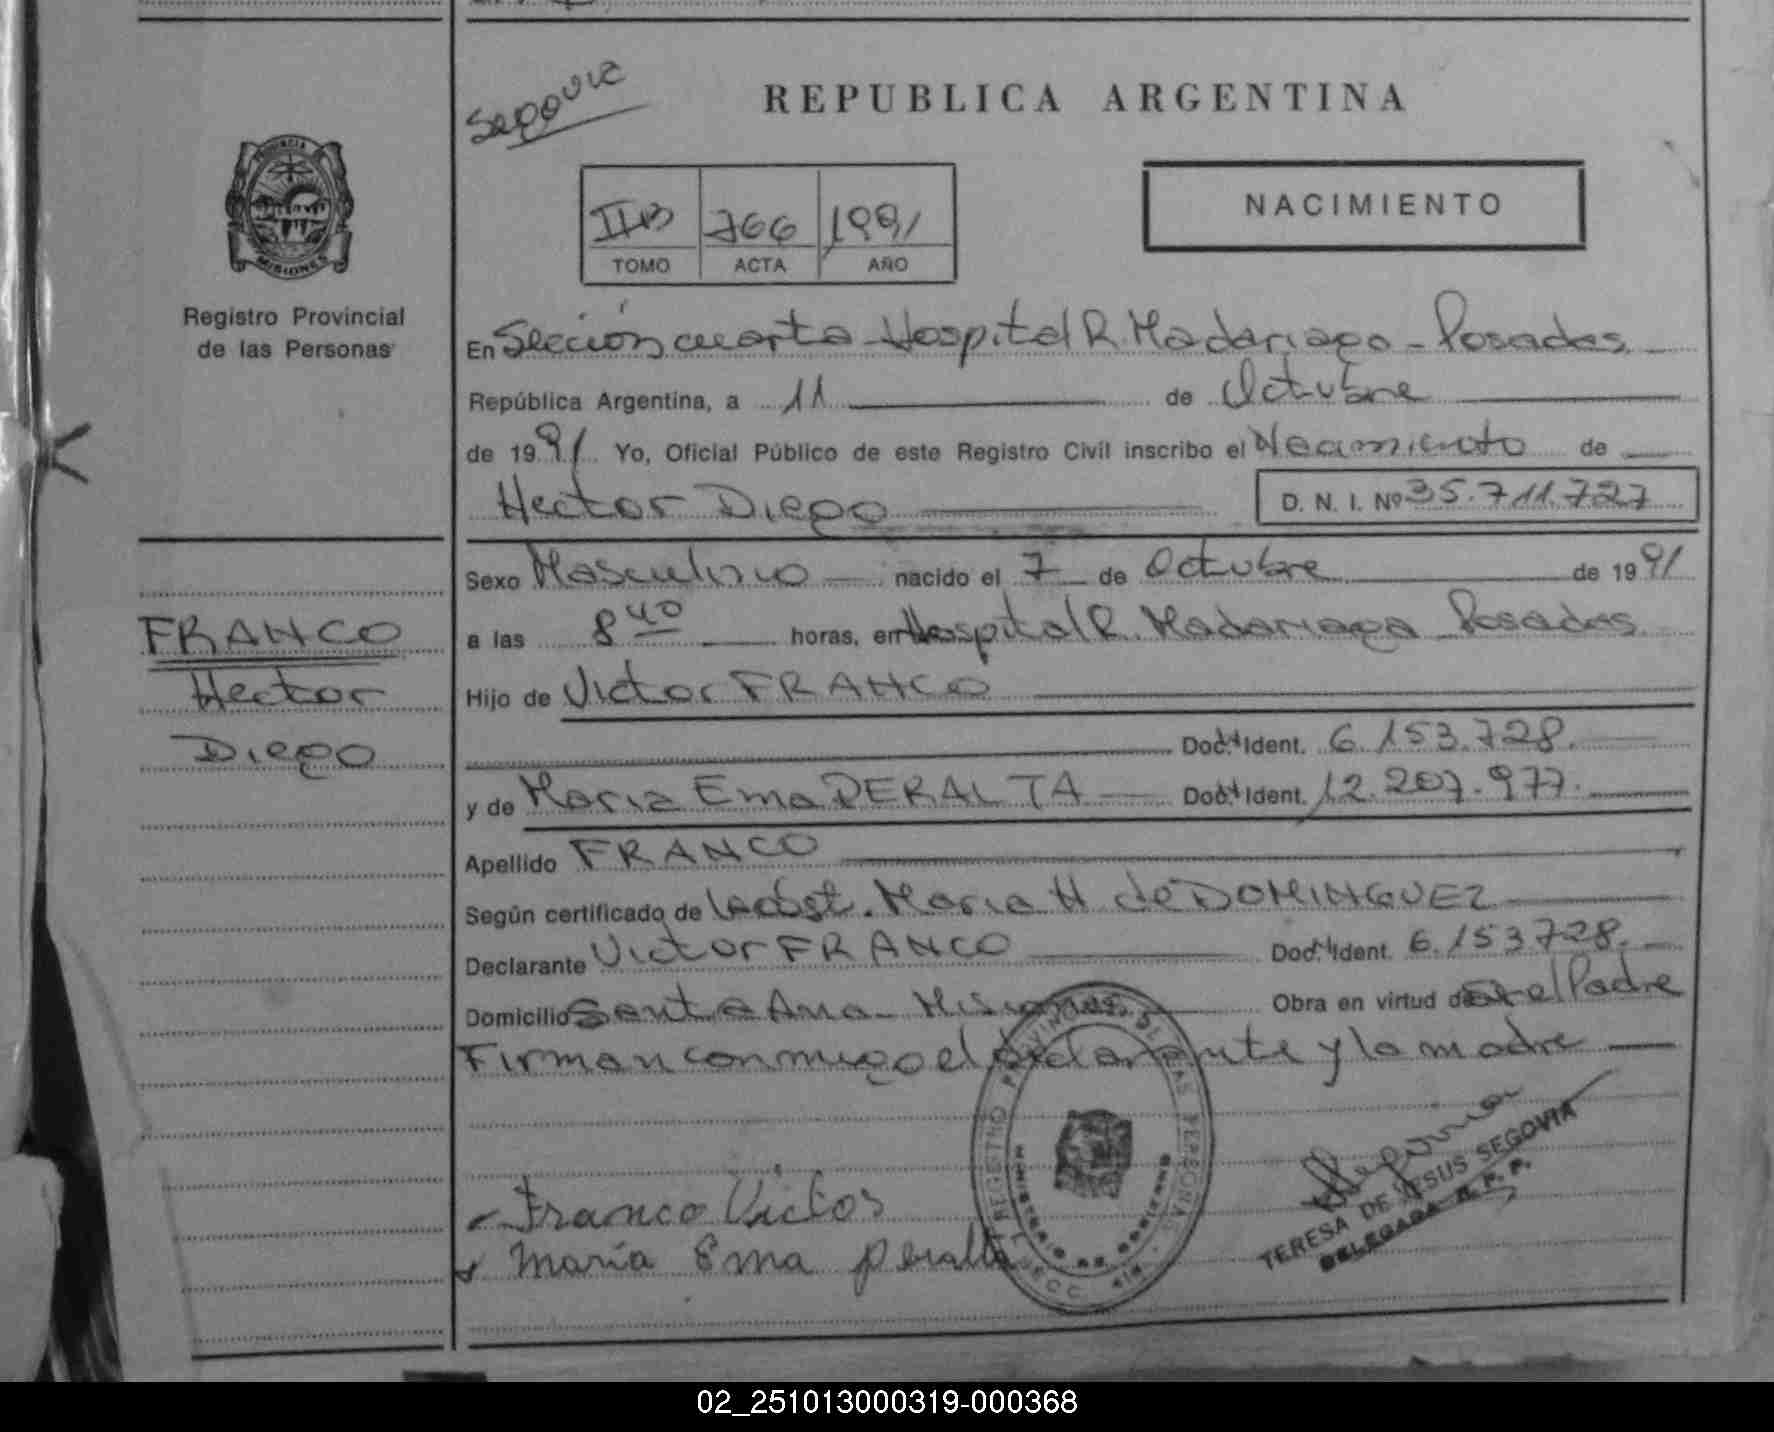 Segovia
REPUBLICA ARGENTINA
PROVINCIA
MISIONES
Registro Provincial
de las Personas
IIB 766 1991
TOMO ACTA AÑO
NACIMIENTO
En Sección cuarta Hospital R. Madariaga - Posadas
República Argentina, a 11 de Octubre
de 1991 Yo, Oficial Público de este Registro Civil inscribo el Nacimiento de
Hector Diego D. N. I. Nº 35.711.727
Sexo Masculino nacido el 7 de Octubre de 1991
FRANCO
Hector
Diego
a las 8 40 horas, en Hospital R. Madariaga Posadas
Hijo de Victor FRANCO
Doc. Ident. 6.153.728.
y de Maria Ema PERALTA Doc. Ident. 12.207.977.
Apellido FRANCO
Según certificado de la obst. Maria H de DOMINGUEZ
Declarante Victor FRANCO Doc. Ident. 6.153.728.
Domicilio Santa Ana - Misiones Obra en virtud de Ser el Padre
Firman conmigo el declarante y la madre
Franco Victor
María Ema peralta
REGISTRO PROVINCIAL DE LAS PERSONAS
MINISTERIO DE GOBIERNO
SECC. 4ta.
Segovia
TERESA DE JESUS SEGOVIA
DELEGADA R. P. P.
02_251013000319-000368